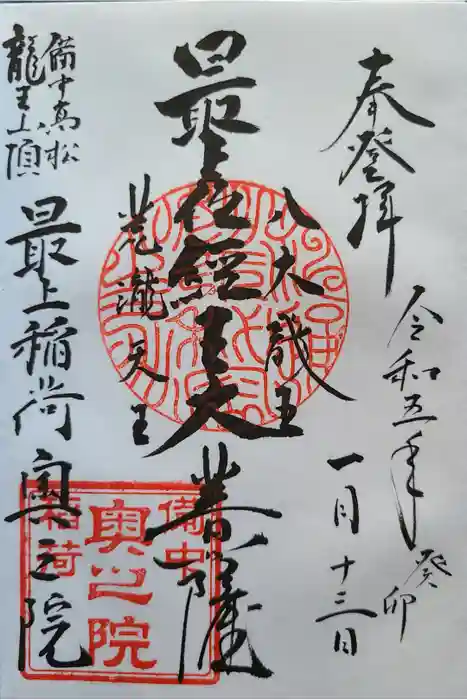 奉登拝
令和五年癸卯
一月十三日
八大歳王
最上位経王大菩薩
荒瀧天王
備中高松
龍王山頂
最上稲荷奥之院
備中
奥之院
稲荷